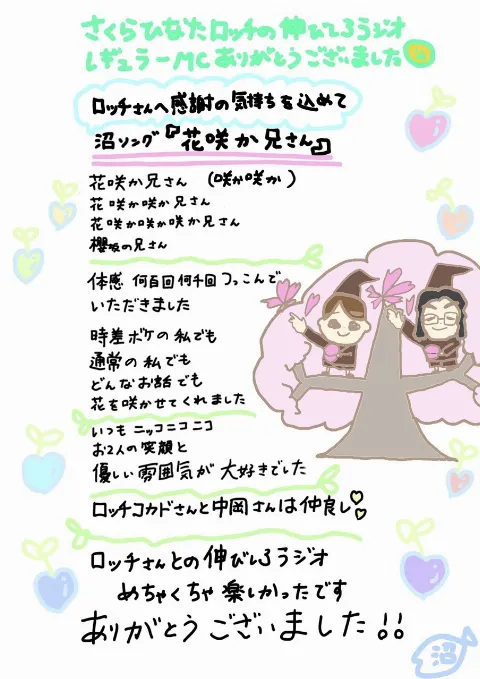 さくらひなたロッチの伸びしろラジオ
レギュラーMCありがとうございました
ロッチさんへ感謝の気持ちを込めて
沼ソング『花咲か兄さん』
花咲か兄さん (咲か咲か)
花咲か咲か兄さん
花咲か咲か咲か兄さん
櫻坂の兄さん
体感 何百回何千回つっこんで
いただきました
時差ボケの私でも
通常の私でも
どんなお話でも
花を咲かせてくれました
いつもニッコニコニコ
お2人の笑顔と
優しい雰囲気が大好きでした
ロッチコカドさんと中岡さんは仲良し
ロッチさんとの伸びしろラジオ
めちゃくちゃ楽しかったです
ありがとうございました!!
沼